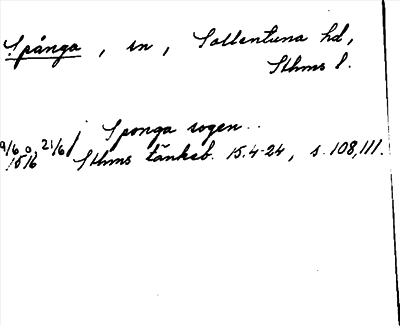 Spånga, sn, Sollentuna hd,
Sthms l.
Sponga sogen..
9/6 o. 21/6 1516 Sthms tänkeb. 15.4-24, s. 108, 111.